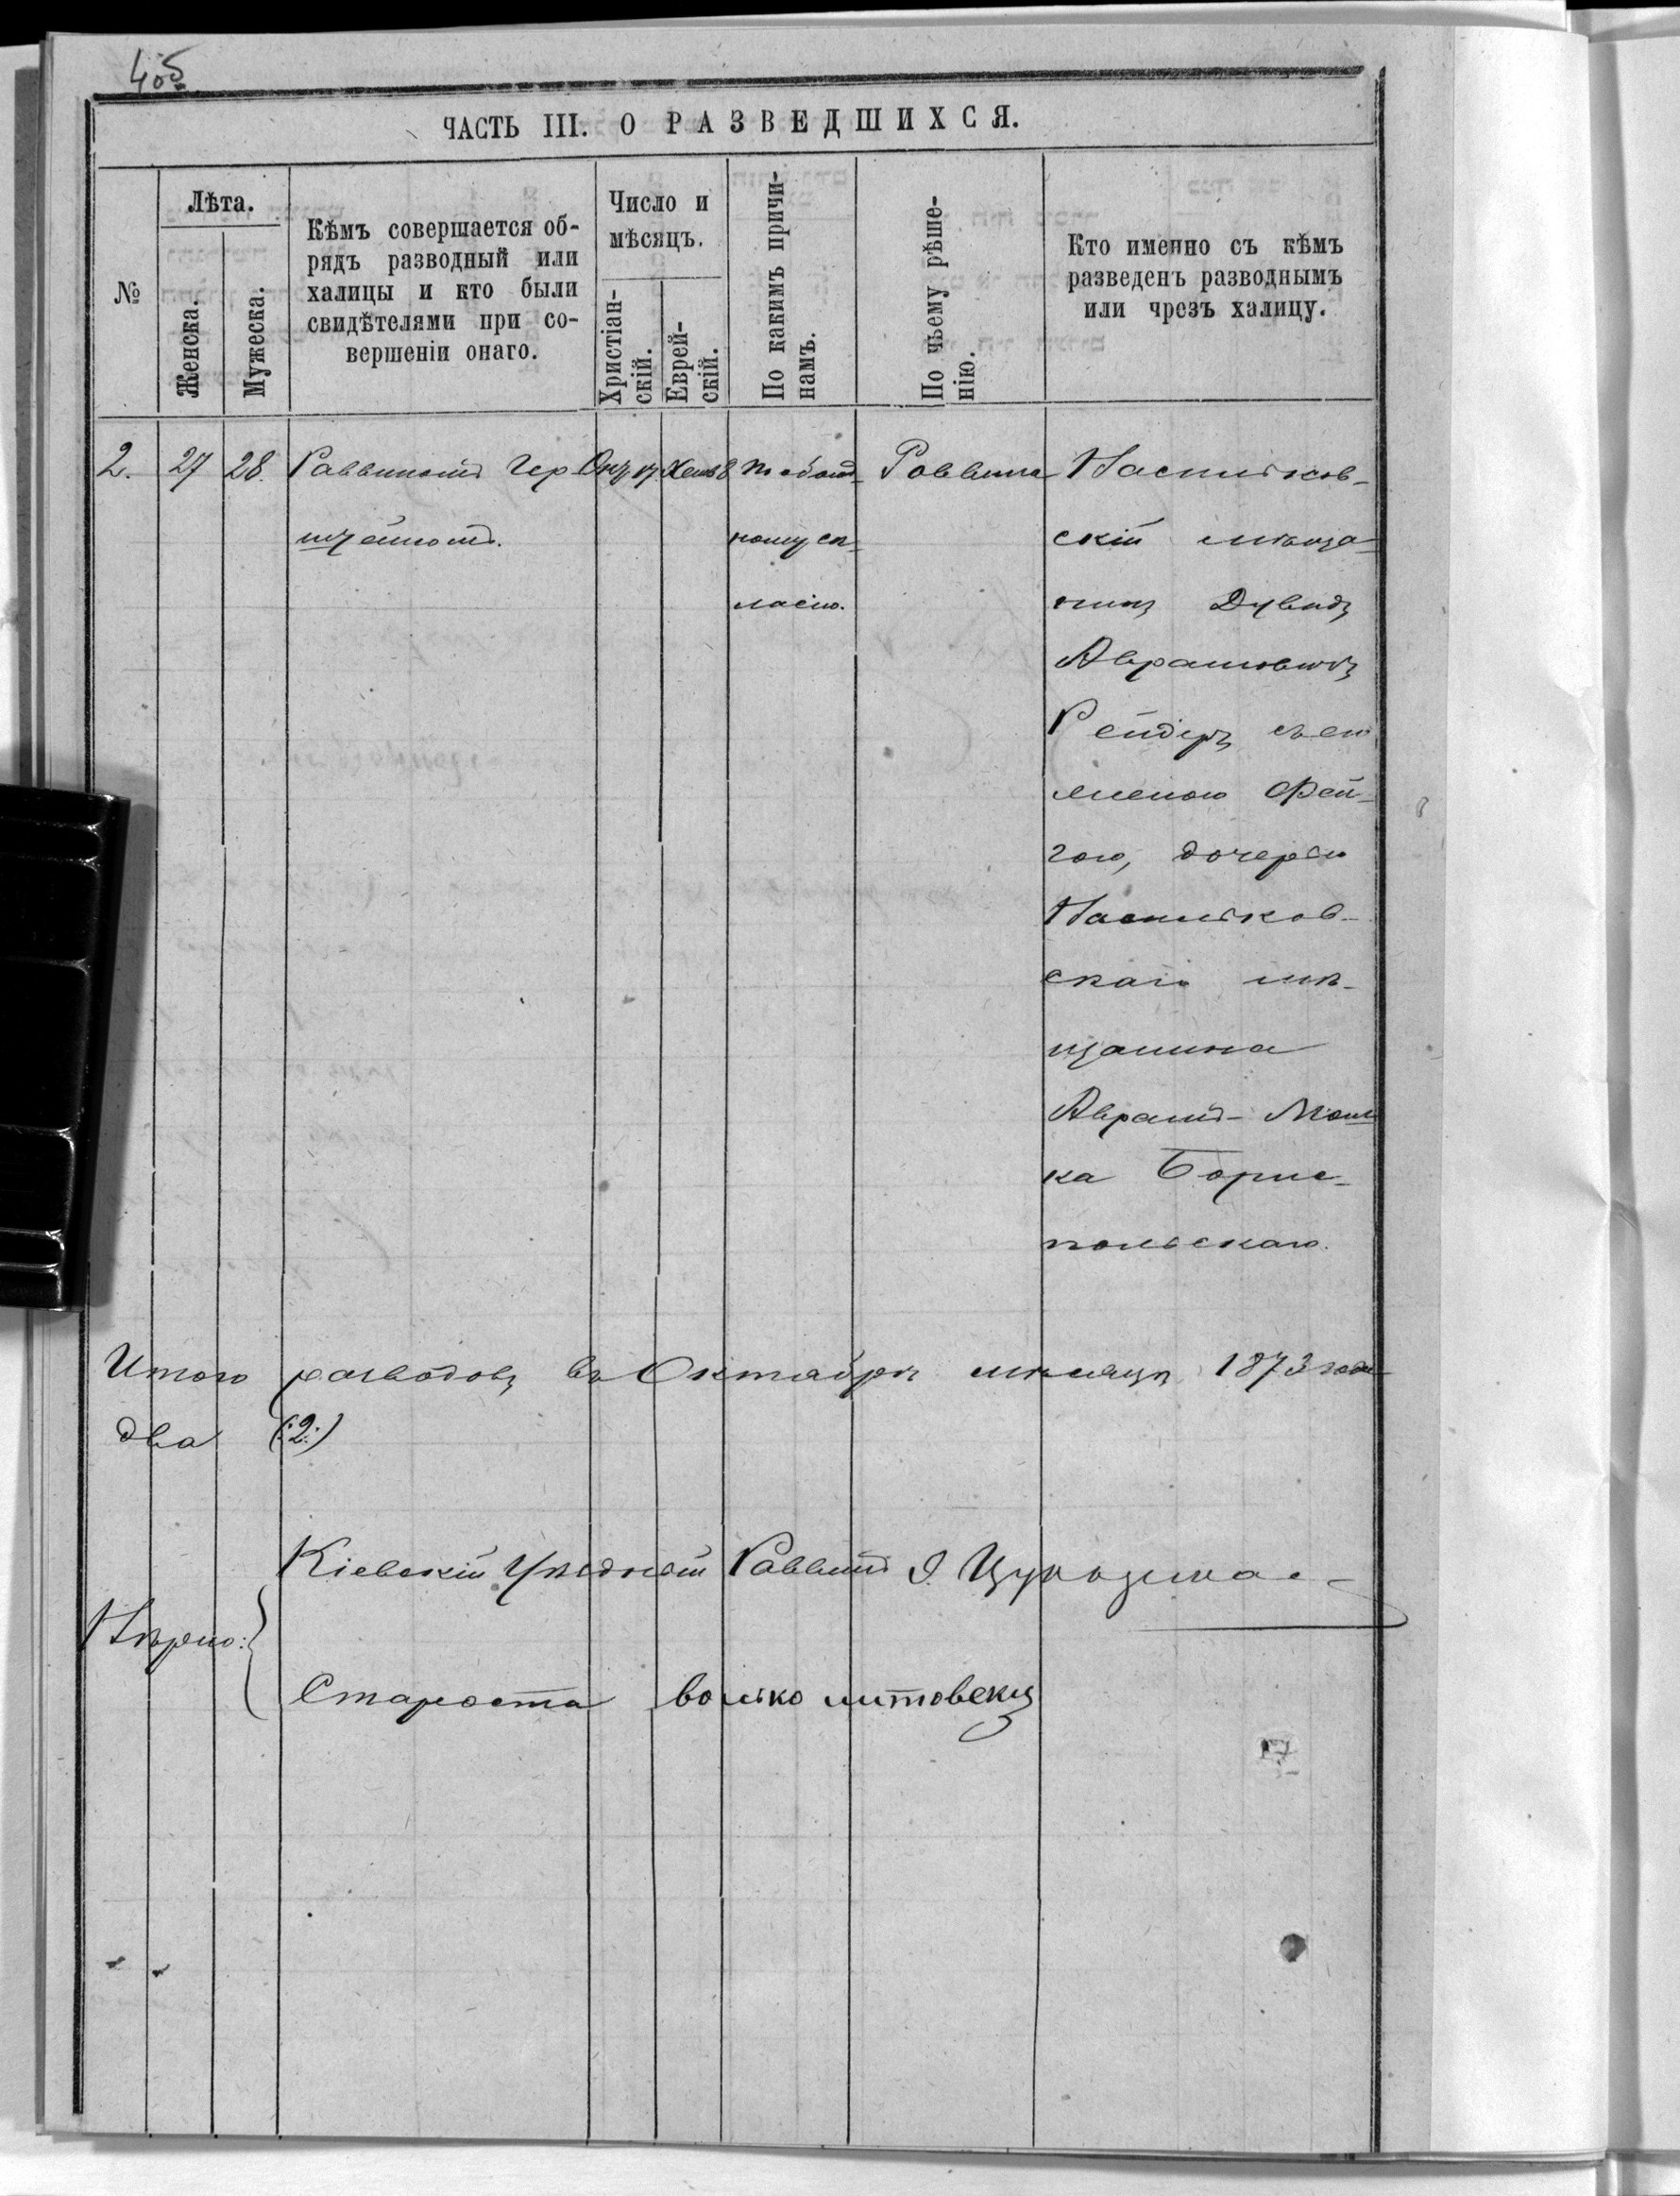 4об
ЧАСТЬ III. О РАЗВЕДШИХСЯ.
№
Лѣта.
Женска.
Мужеска.
Кѣмъ совершается об-
рядъ разводный или
халицы и кто были
свидѣтелями при со-
вершеніи онаго.
Число и
мѣсяцъ.
Христіан-
скій.
Еврей-
скій.
По какимъ причи-
намъ.
По чьему рѣше-
нію.
Кто именно съ кѣмъ
разведенъ разводнымъ
или чрезъ халицу.
2. 27 28.
Раввиномъ Гер
штейномъ.
Окт 17
Хешв 8
По обоюд-
ному со-
гласію.
Раввина
Васильков-
скій мѣща-
нинъ Дувидъ
Аврамовичъ
Рейдеръ съ его
женою Фей-
гою, дочерью
Васильков-
скаго мѣ-
щанина
Аврамъ-Мош
ка Борис-
польскаго.
Итого разводовъ въ Октябрѣ мѣсяцѣ 1873 года
два (:2:)
Кіевскій Уѣздной Раввинъ
Вѣрно:
Староста волько литовскъ